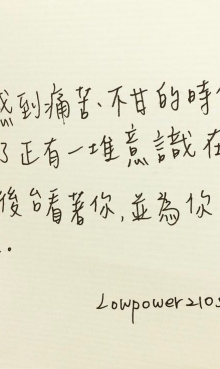 感到痛苦、不甘的時
了正有一堆意識在
後台看著你,並為你
..
Lowpower2105